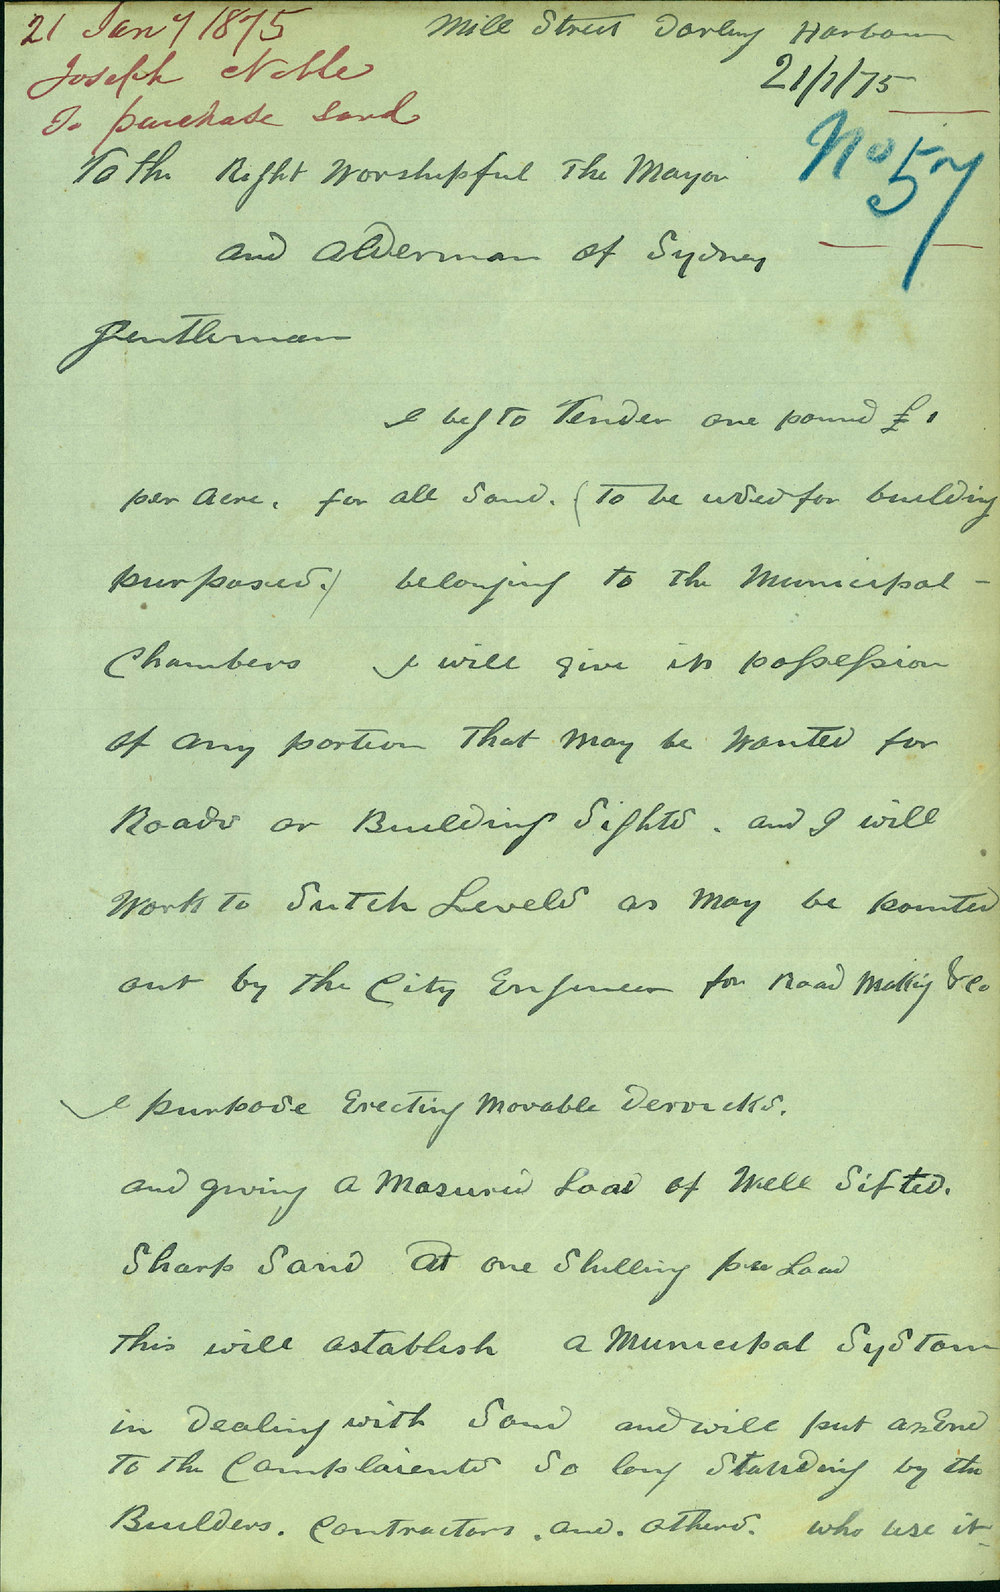 21 Jany 1875
Joseph Noble
To purchase sand
Mill Street Darling Harbour
21/1/75
No 57
To the Right Worshipful The Mayor
and Alderman of Sydney
Gentleman
I beg To Tender one pound £1
per Acre. for all Sand. (To be used for building
purposes.) belonging to The Municipal -
Chambers I will give up possession
of any portion That May be Wanted for
Roads or Building Sights. and I will
Work to Sutch Levels as May be pointed
out by The City Engineer for Road Making &c
I purpose Erecting Movable Derricks.
and giving A Masured Load of Well Sifted.
Sharp Sand At one Shilling per Load
This will astablish A Municipal Systam
in Dealing with Sand and will put an End
To The Complaients So long Standing by the
Builders. Contractors. and. others. who use it-